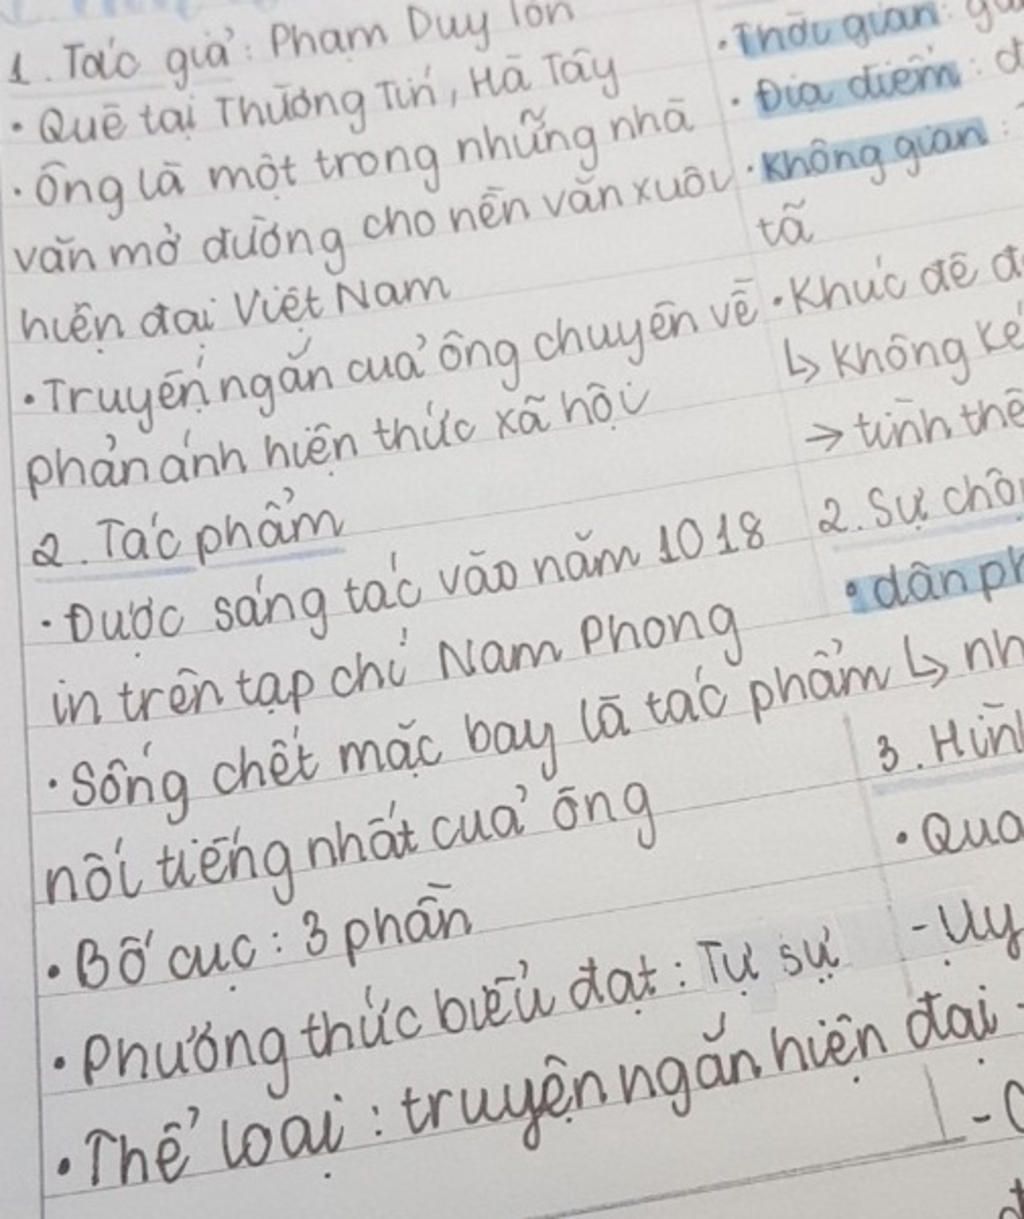 1. Tác giả: Phạm Duy Tốn
• Quê tại Thường Tín, Hà Tây
• Ông là một trong những nhà
văn mở đường cho nền văn xuôi
hiện đại Việt Nam
• Truyện ngắn của ông chuyên về
phản ánh hiện thức xã hội
2. Tác phẩm
• Được sáng tác vào năm 1018
in trên tạp chí Nam Phong
• Sống chết mặc bay là tác phẩm
nổi tiếng nhất của ông
• Bố cục: 3 phần
• Phương thức biểu đạt: Tự sự
• Thể loại: truyện ngắn hiện đại
• Thời gian:
• Địa điểm:
• Không gian:
tã
• Khúc đê
↳ Không
→ tình
2. Sự
• dân
↳
3.
•
-
-